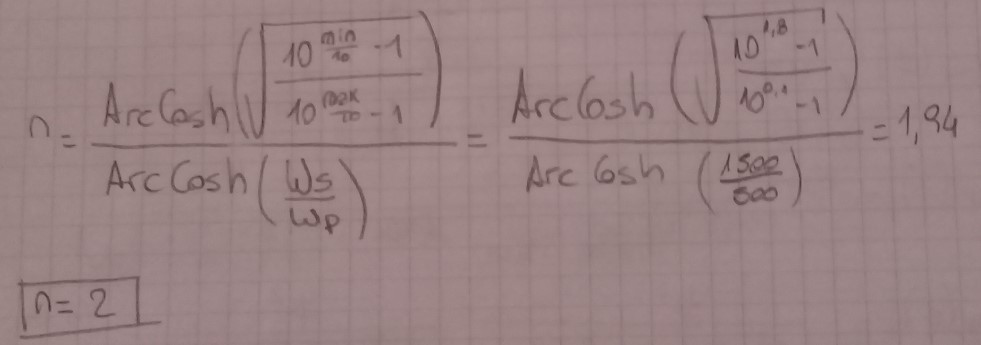 n = ArcCosh(√((10^(min/10) - 1)/(10^(max/10) - 1))) / ArcCosh(Ws/Wp) = ArcCosh(√((10^1,8 - 1)/(10^0,1 - 1))) / ArcCosh(1500/500) = 1,94
n = 2